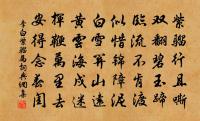 紫騮行且嘶
雙翻碧玉蹄
臨流不肯渡
似惜錦障泥
白雪關山遠
黃雲海戍迷
揮鞭萬里去
安得念春閨
李白紫騮馬詞典網